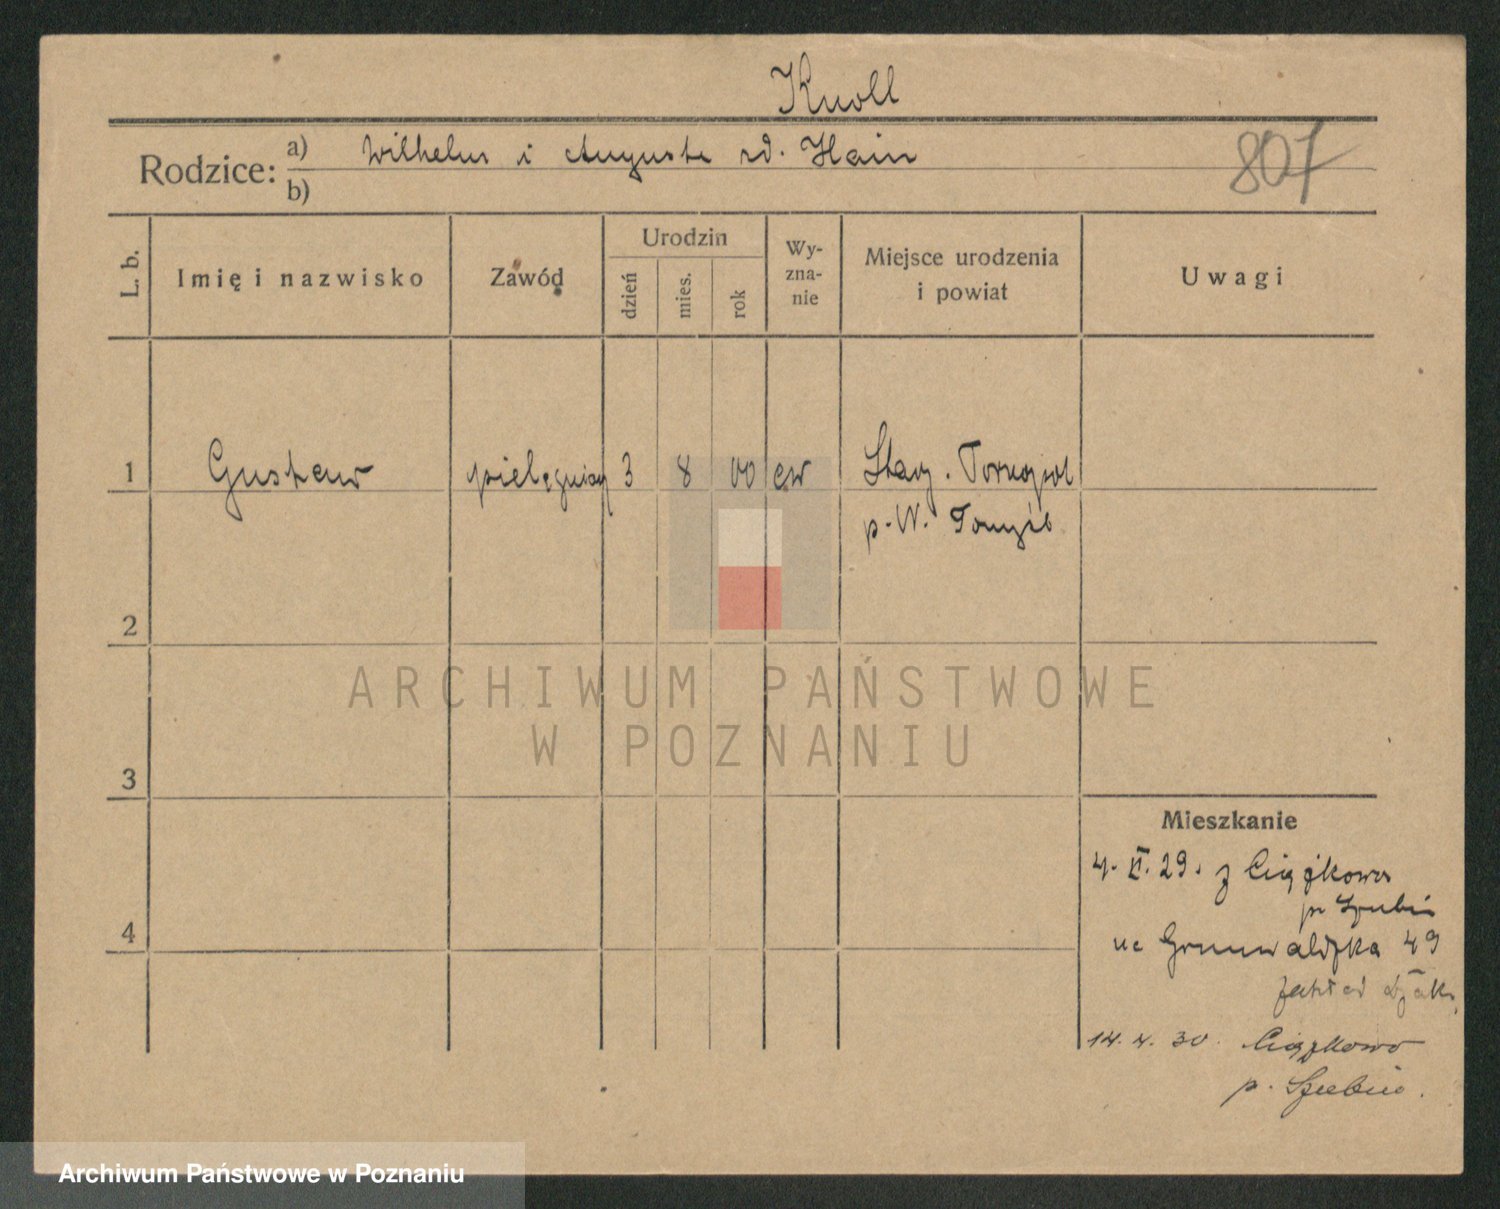 Knoll
Rodzice: a) Wilhelm i Auguste rd. Hain
b)
807
L. b.
Imię i nazwisko
Zawód
Urodzin
dzień
mies.
rok
Wy-
zna-
nie
Miejsce urodzenia
i powiat
Uwagi
1 Gustaw 3 8 00 ew
p. N. Tomyśl
2
3
4
Mieszkanie
4. XI. 29. z Ciążkowa
p. Szubin
na Grunwaldzka 49
zakład
14. 4. 30. Ciążkowo
p. Szubin.
ARCHIWUM PAŃSTWOWE
W POZNANIU
Archiwum Państwowe w Poznaniu